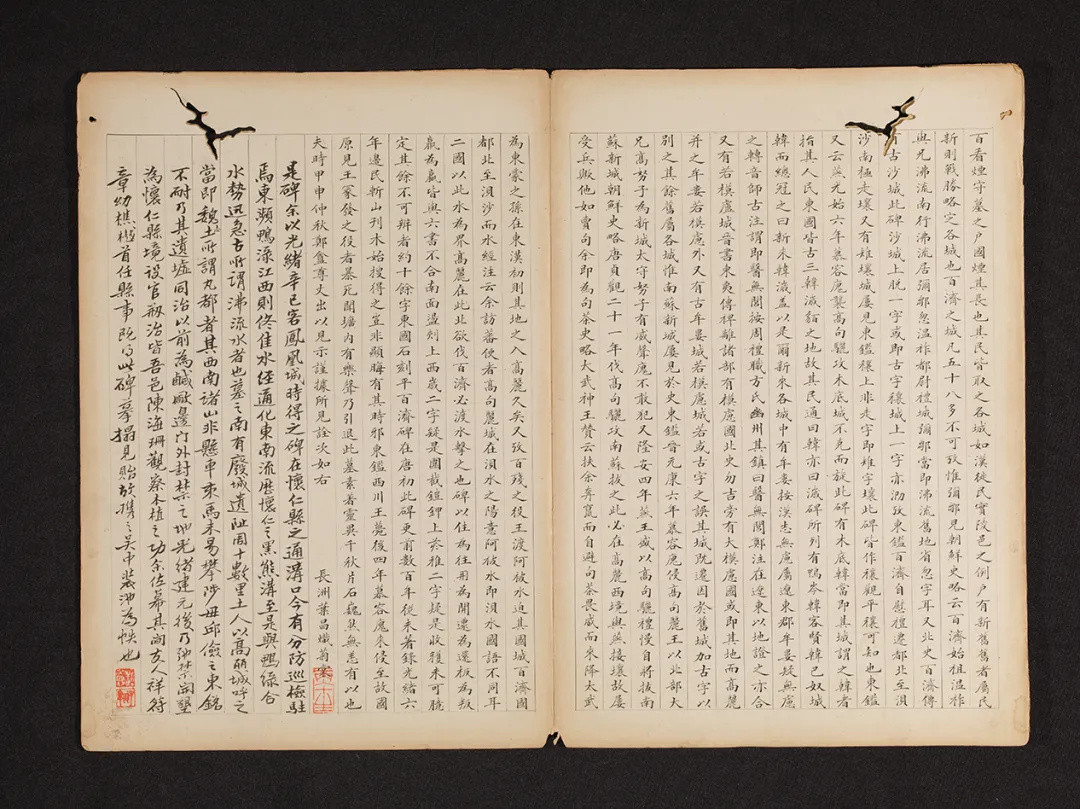 百看煙守墓之戶國煙其長也其民皆取之各城如漢徙民實陵邑之例戶有新舊舊者屬民
新則戰勝略定各城也百濟之城凡五十八多不可攷惟彌鄒見朝鮮史略云百濟始祖溫祚
與兄沸流南行沸流居彌鄒忽溫祚都尉禮城彌鄒當即沸流舊地省忽字耳又北史百濟傳
有古沙城此碑沙城上脫一字或即古字穰城上一字亦泐攷東鑑百濟自慰禮遷都北至浿
沙南極走壤又有雉壤城屢見東鑑穰上非走字即雉字壤此碑皆作穰觀平穰可知也東鑑
又云燕元始六年慕容麾襲高句驪攻木底城不克而旋此碑有木底韓當即其城謂之韓者
指其人民東國皆古三韓濊貊之地故其民通曰韓亦曰濊碑所列有鴨岑韓客賢韓巴奴城
韓而總冠之曰新來韓濊蓋以是爾新來各城中有牟婁按漢志無慮屬遼東郡牟婁疑無慮
之轉音師古注謂即醫無閭按周禮職方氏幽州其鎮曰醫無閭鄭注在遼東以地證之亦合
又有若模盧城晉書東夷傳稗離諸部有模盧國北史勿吉旁有大模盧國或即其地而高麗
并之牟婁若模盧外又有古牟婁城若模盧城若或古字之誤其城既遷因於舊城加古字以
別之其餘舊屬各城惟南蘇新城屢見於史東鑑晉元康六年慕容廆侵高句麗王以北部大
兄高努子為新城太守努子有威聲廆不敢犯又隆安四年燕王盛以高句驪禮慢自將拔南
蘇新城朝鮮史略唐貞觀二十一年伐高句驪攻南蘇拔之此必在高麗西境與燕接壤故屢
受兵歟他如賣句余即為句茶史略大武神王贊云扶余弃寬而自避句茶畏威而來降太武
為東蒙之孫在東漢初則其地之入高麗久矣又攷百殘之役王渡阿被水迫其國城百濟國
都北至浿沙而水經注云余訪蕃使者高句麗城在浿水之陽意阿被水即浿水國語不同耳
二國以此水為界高麗在此北欲伐百濟必渡水擊之也碑以住為往用為開遝為還板為叛
羸為贏皆與六書不合南面盪刬上西歲二字疑是國截鎧鉀上兹推二字疑是收獲未可臆
定其餘不可辨者約十餘字東國石刻平百濟碑在唐初此碑更前數百年從未著錄光緒六
年邊民斬山刊木始搜得之豈非顯晦有其時邪東鑑西川王薨後四年慕容廆來侵至故國
原見王冢發之役者暴死聞壙內有樂聲乃引退此墓素著靈吳千秋片石巍然無恙有以也
夫時甲申仲秋鄭盦尊丈出以見示謹據所見詮次如右
長洲葉昌熾翁
是碑余以光緒辛巳客鳳凰城時得之碑在懷仁縣之通溝口今有分防巡檢駐
焉東瀕鴨淥江西則佟佳水逕通化東南流歷懷仁之黑熊溝至是與鴨綠合
水勢迅急古所謂沸流水者也墓之南有廢城遺阯周十數里土人以高麗城呼之
當即魏土所謂丸都者其西南諸山非懸車束馬未易攀陟毋邱儉之東銘
不耐乃其遺墟同治以前為鹹廠邊門外封禁之地光緒建元後乃弛禁開墾
為懷仁縣境設官剏治皆吾邑陳海珊觀察本植之功余佐幕其間友人祥符
章幼樵樾首任縣事既得此碑摹搨見貽故攜之吳中裝池為帙也